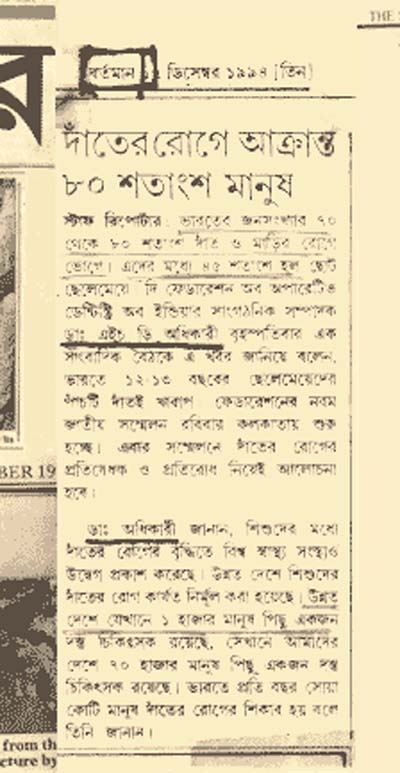 THE
বর্তমান ১২ ডিসেম্বর ১৯৯৪ [তিন]
র
দাঁতের রোগে আক্রান্ত
৮০ শতাংশ মানুষ
স্টাফ রিপোর্টার: ভারতের জনসংখ্যার ৭০
থেকে ৮০ শতাংশ দাঁত ও মাড়ির রোগে
ভোগে। এদের মধ্যে ৪৫ শতাংশে হল ছোট
ছেলেমেয়ে। দি ফেডারেশন অব অপারেটিভ
ডেন্টিস্ট্রি অব ইন্ডিয়ার সাংগঠনিক সম্পাদক
ডাঃ এইচ ডি অধিকারী বৃহস্পতিবার এক
সাংবাদিক বৈঠকে এ খবর জানিয়ে বলেন,
ভারতে ১২-১৩ বছরের ছেলেমেয়েদের
পাঁচটি দাঁতই খারাপ। ফেডারেশনের নবম
জাতীয় সম্মেলন রবিবার কলকাতায় শুরু
হচ্ছে। এবার সম্মেলনে দাঁতের রোগের
প্রতিষেধক ও প্রতিরোধ নিয়েই আলোচনা
হবে।
ডাঃ অধিকারী জানান, শিশুদের মধ্যে
দাঁতের রোগের বৃদ্ধিতে বিশ্ব স্বাস্থ্য সংস্থাও
উদ্বেগ প্রকাশ করেছে। উন্নত দেশে শিশুদের
দাঁতের রোগ কার্যত নির্মূল করা হয়েছে। উন্নত
দেশে যেখানে ১ হাজার মানুষ পিছু একজন
দন্ত চিকিৎসক রয়েছে, সেখানে আমাদের
দেশে ৭০ হাজার মানুষ পিছু একজন দন্ত
চিকিৎসক রয়েছে। ভারতে প্রতি বছর সোয়া
কোটি মানুষ দাঁতের রোগের শিকার হয় বলে
তিনি জানান।
BER 19
from th
cture by